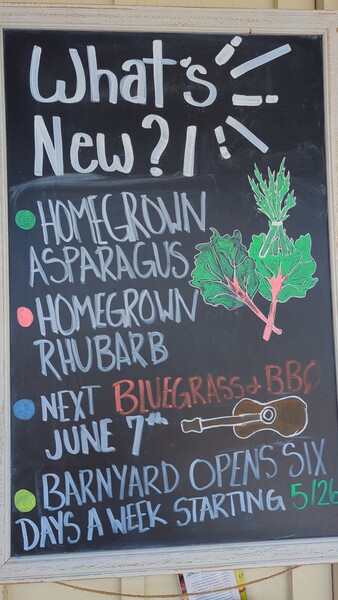 What's
New?!
HOMEGROWN
ASPARAGUS
HOMEGROWN
RHUBARB
NEXT BLUEGRASS & BBQ
JUNE 7th
BARNYARD OPENS SIX
DAYS A WEEK STARTING 5/26